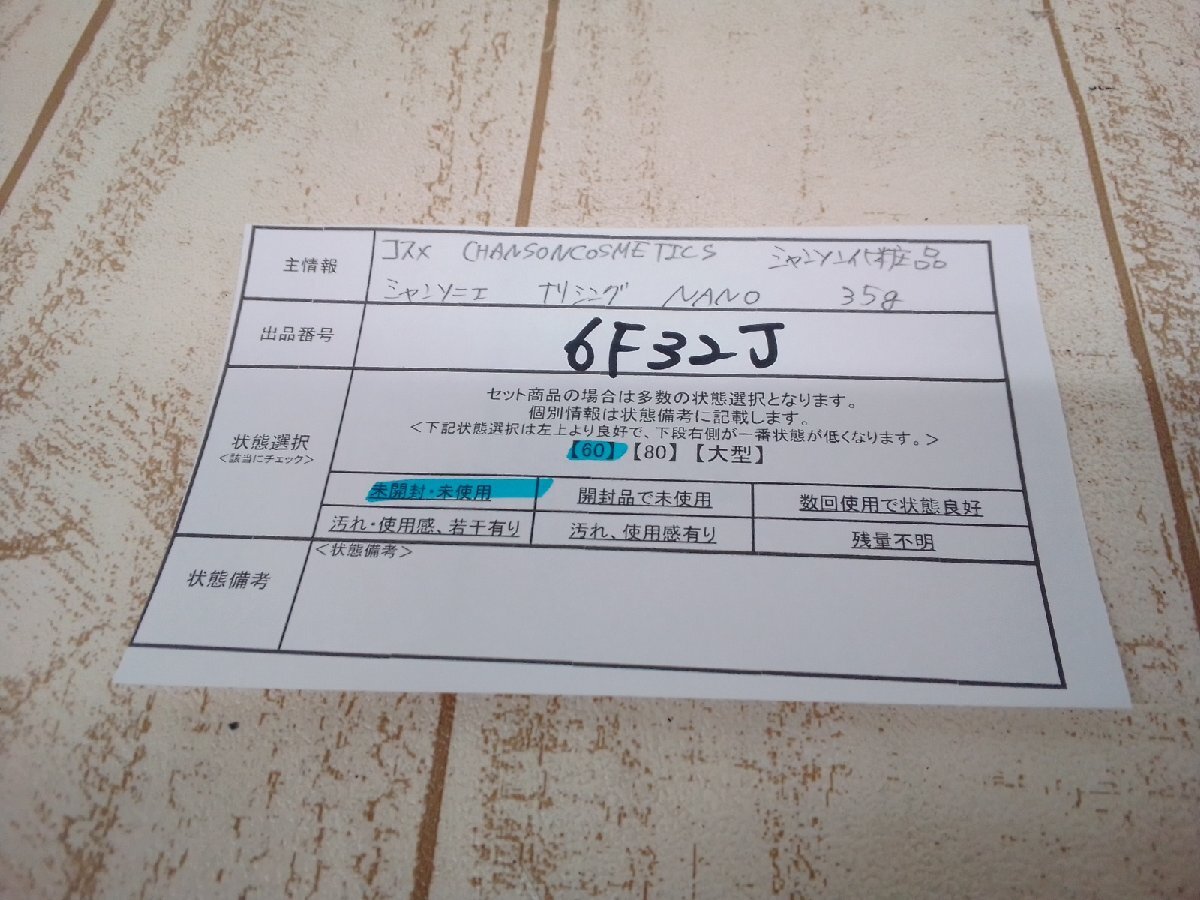 主情報
コスメ CHANSONCOSMETICS シャンソン化粧品
シャンソニエ ナリシング NANO 35g
出品番号
6F32J
状態選択
<該当にチェック>
セット商品の場合は多数の状態選択となります。
個別情報は状態備考に記載します。
<下記状態選択は左上より良好で、下段右側が一番状態が低くなります。>
【60】【80】【大型】
未開封・未使用 開封品で未使用 数回使用で状態良好
汚れ・使用感、若干有り 汚れ、使用感有り 残量不明
状態備考
<状態備考>